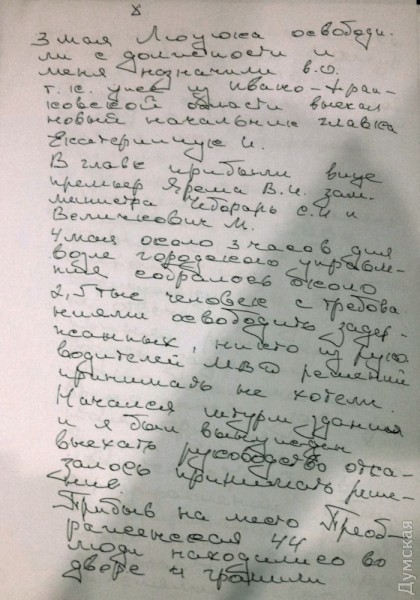 8
3 мая Люцюка освободи-
ли с должности и
меня назначили в.о.
т.к. уже из Ивано-Фран-
ковской области выехал
новый начальник главка
Екатеринчук И.
В главк прибыли вице
премьер Ярема В.И. зам.
министра Чеборарь С.И и
Величкович М.
4 мая около 3 часов дня
возле городского управле-
ния собралось около
2,5 тыс человек с требова
ниями освободить задер-
жанных, никто из руко
водителей МВД решений
принимать не хотели.
Начался штурм здания
и я был вынужден
выехать руководство отка-
залось принимать реше-
ние.
Прибыв на место Преоб-
раженская 44
люди находились во
дворе и громили
Думская